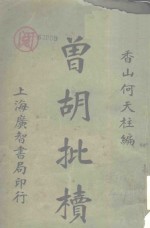 香山何天柱編
曾胡批牘
上海廣智書局印行